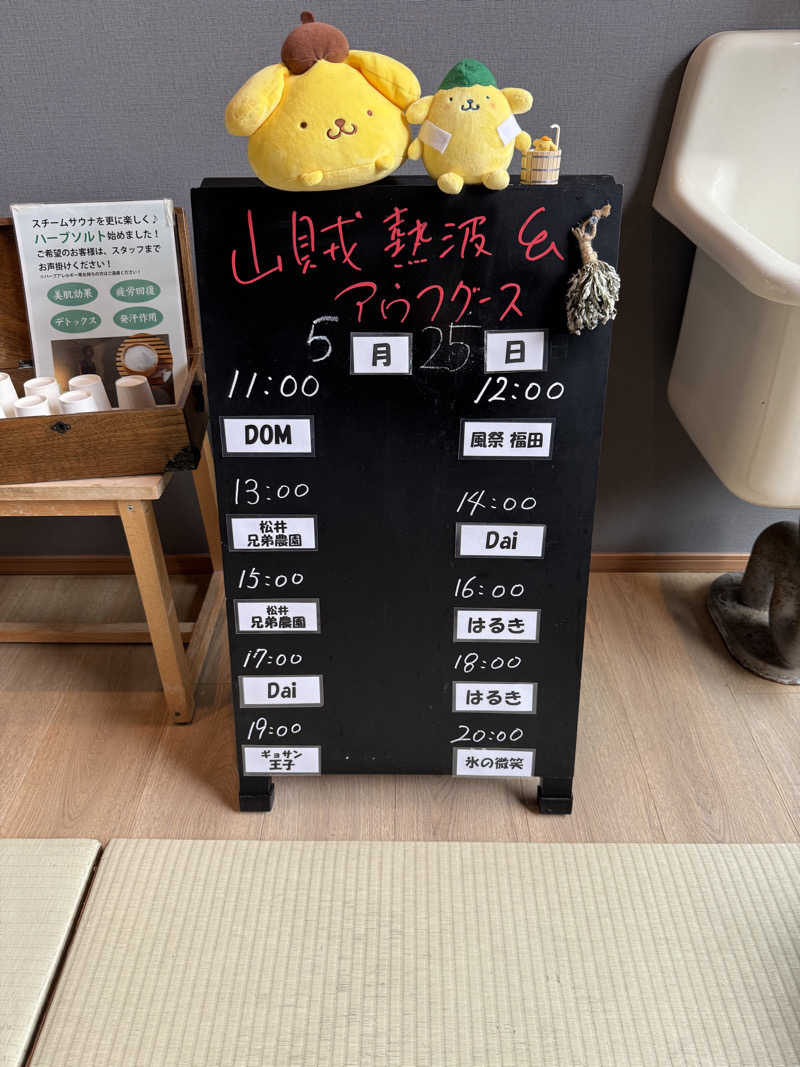 スチームサウナを更に楽しく♪
ハーブソルト始めました！
ご希望のお客様は、スタッフまで
お声掛けください！
美肌効果
疲労回復
デトックス
発汗作用
山賊熱波&
アウフグース
5月25日
11:00
12:00
DOM
風祭 福田
13:00
14:00
松井
兄弟農園
Dai
15:00
16:00
松井
兄弟農園
はるき
17:00
18:00
Dai
はるき
19:00
20:00
ギョサン
王子
氷の微笑